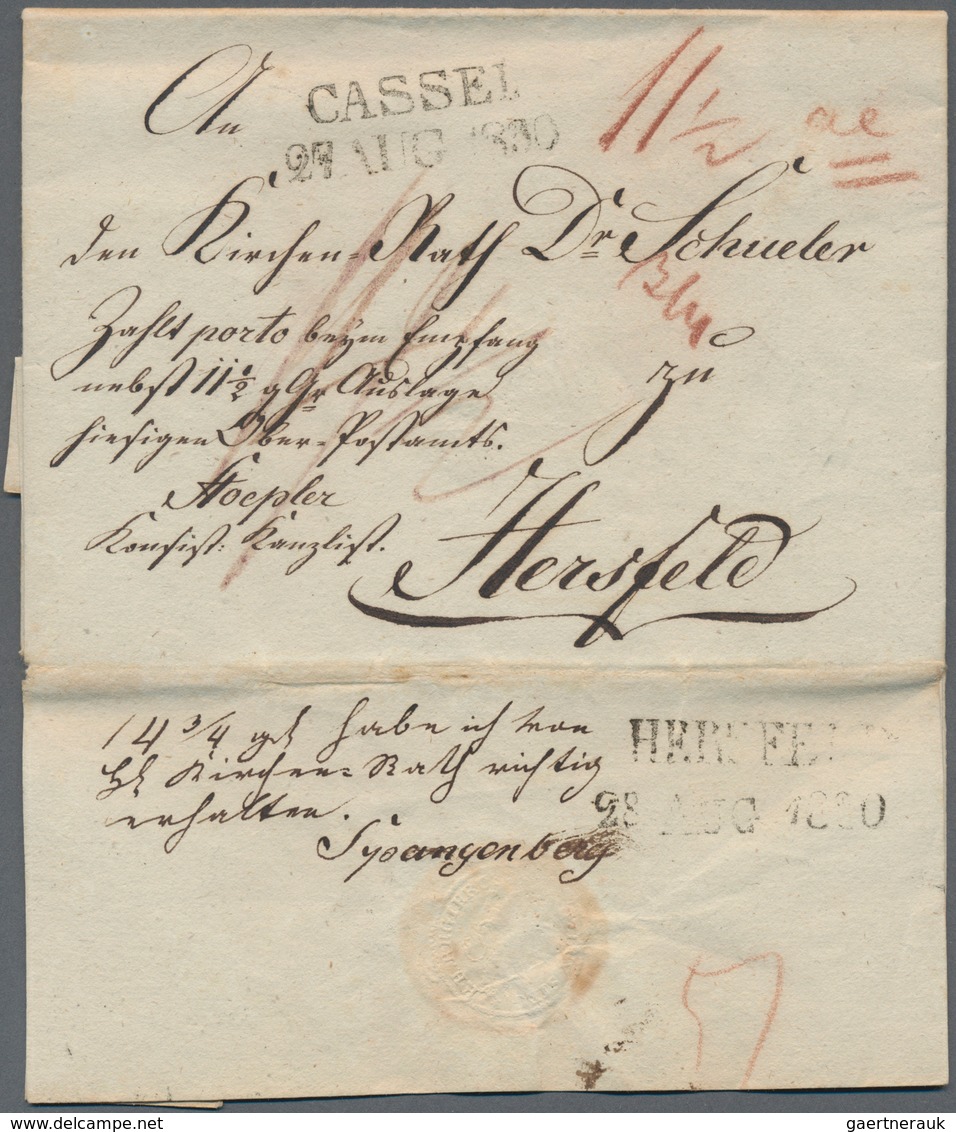 An
CASSEL
27 AUG 1830
11 1/2
den Kirchen=Rath Dr Schueler
Zahlt porto beym Empfang
nebst 11 1/2 gGr Auslage
hiesigen Ober=Postamts.
zu
Hoepler
Konsist: Kanzlist.
Hersfeld
14 3/4 habe ich von
Kirchen=Rath richtig
erhalten.
Spangenberg
HERSFELD
28 AUG 1830
delcampe.net
gaertnerauk